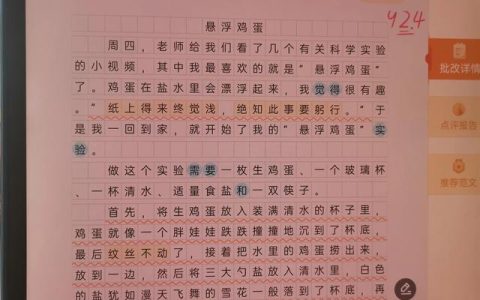 悬浮鸡蛋
42.4
周四，老师给我们看了几个有关科学实验
的小视频，其中我最喜欢的就是“悬浮鸡蛋”
了。鸡蛋在盐水里会漂浮起来，我觉得很有趣
。“纸上得来终觉浅，绝知此事要躬行。”于
是我一回到家，就开始了我的“悬浮鸡蛋”实
验。
做这个实验需要一枚生鸡蛋、一个玻璃杯
、一杯清水、适量食盐和一双筷子。
首先，将生鸡蛋放入装满清水的杯子里，
鸡蛋就像一个胖娃娃跌跌撞撞地沉到了杯底，
最后纹丝不动了，接着把水里的鸡蛋捞出来，
放到一边，然后将三大勺盐放入清水里，白色
的盐犹如漫天飞舞的雪花一般落到了杯底，再
批改详情
点评报告
推荐范文